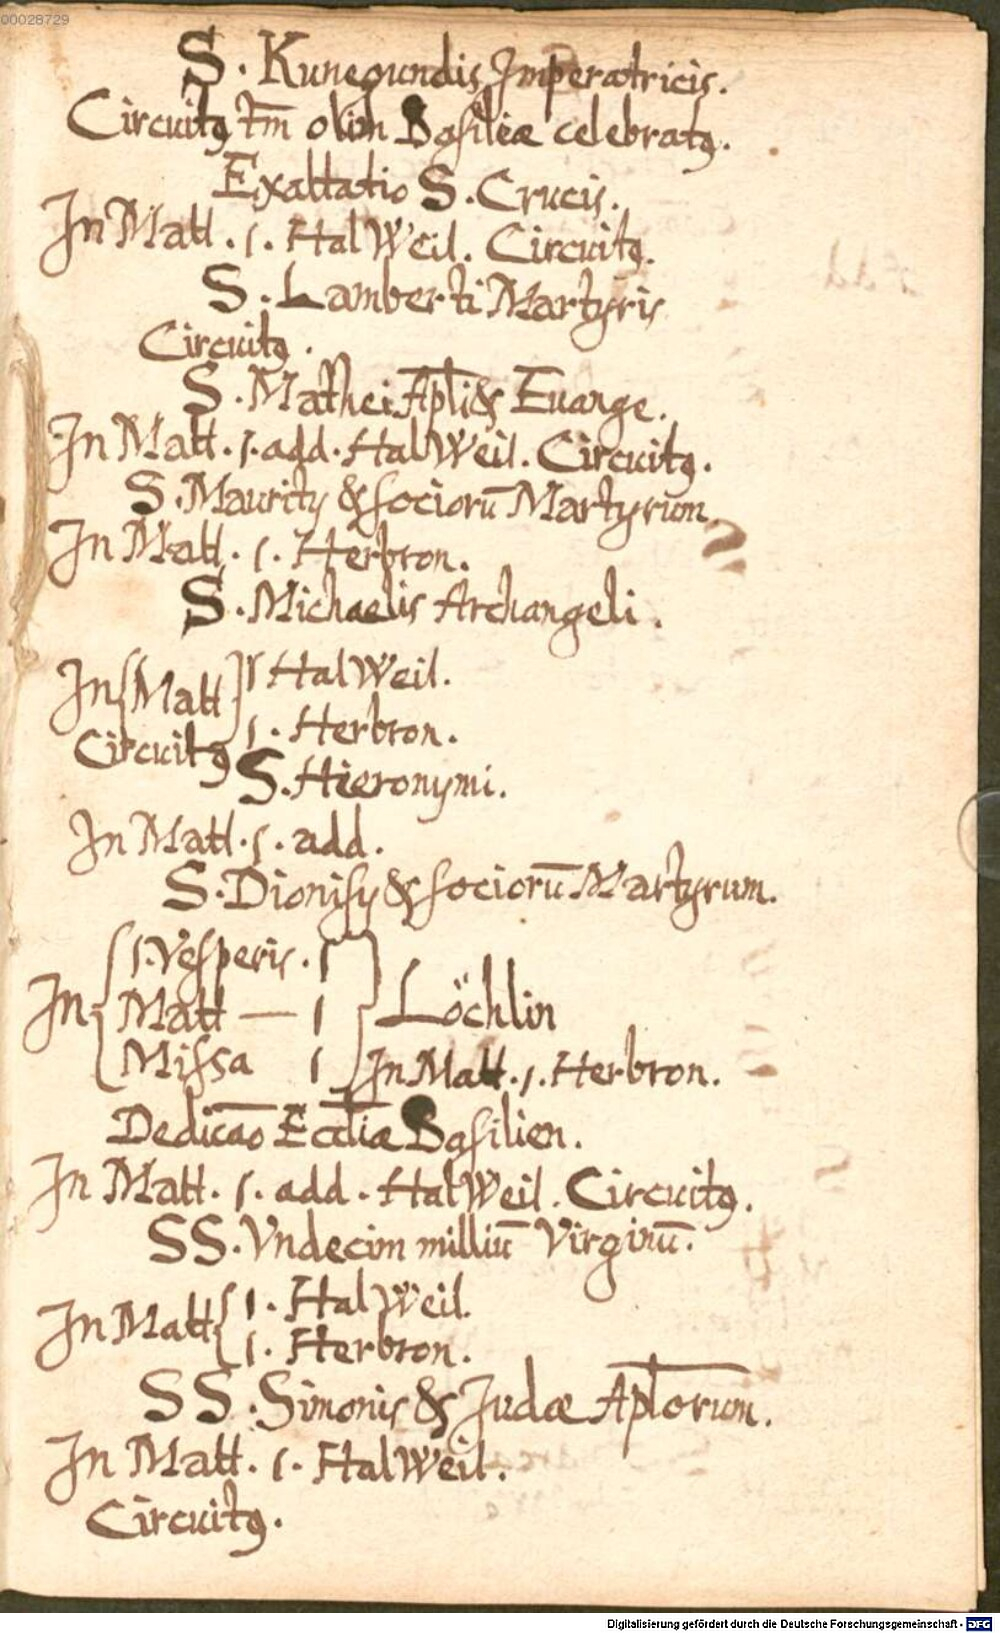 00028729
S. Kunegundis Imperatricis.
Circuitꝰ tm̄ olim Basileæ celebratꝰ.
Exaltatio S. Crucis.
In Matt. 1. HalWeil. Circuitꝰ.
S. Lamberti Martyris
Circuitꝰ.
S. Mathei Apli & Euange.
In Matt. 1. add. HalWeil. Circuitꝰ.
S. Maurity & sociorū Martyrum
In Matt. 1. Herbron.
S. Michaelis Archangeli.
In { Matt } 1 HalWeil.
1. Herbron.
Circuitꝰ
S. Hieronymi.
In Matt. 1. add.
S. Dionisy & sociorū Martyrum.
1. Vesperis. 1
In { Matt — 1 } Löchlin
Missa 1
In Matt. 1. Herbron.
Dedicāo Eccliæ Basilien.
In Matt. 1. add. HalWeil. Circuitꝰ.
SS. Vndecim milliū Virginū.
In Matt { 1. HalWeil.
1. Herbron.
SS. Simonis & Judæ Aplorum.
In Matt. 1. HalWeil.
Circuitꝰ.
Digitalisierung gefördert durch die Deutsche Forschungsgemeinschaft - DFG